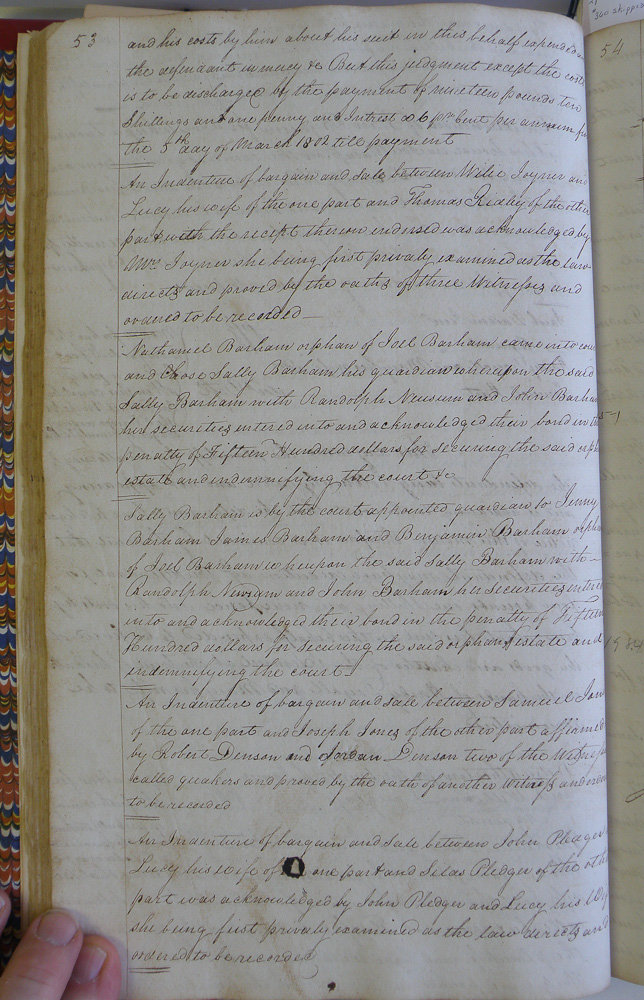 53
and his costs by him about his suit in this behalf expended and
the defendant in mercy &c But this judgment except the costs
is to be discharged by the payment of nineteen pounds ten
Shillings and one penny and Intrest a 6 pr Cent per annum fr
the 5th day of March 1802 till payment
An Indenture of bargain and sale between Wilie Joyner and
Lucy his wife of the one part and Thomas Ridley of the other
part with the recept thereon indorsed was acknowledged by
Mrs. Joyner she being first privately examined as the law
directs and proved by the oaths of three Witnesses and
ordered to be recorded
Nathaniel Barham orphan of Joel Barham came into cou
and Chose Sally Barham his guardian whereupon the said
Sally Barham with Randolph Newsum and John Barha
her securities entered into and acknowledged their bond in th
penalty of Fifteen Hundred dollars for securing the said orph
estate and indemnifying the court &c
Sally Barham is by the court appointed guardian to Jenny
Barham James Barham and Benjamin Barham orpha
of Joel Barham whereupon the said Sally Barham with
Randolph Newsum and John Barham her securities entere
into and acknowledged their bond in the penalty of Fifteen
Hundred dollars for securing the said orphans estate and
indemnifying the court
An Indenture of bargain and sale between Samuel Jon
of the one part and Joseph Jones of the other part affirmed
by Robert Denson and Jordan Denson two of the Witnes
called quakers and proved by the oath of another Witness and order
to be recorded
An Indenture of bargain and sale between John Pledger
Lucy his wife of one part and Silas Pledger of the oth
part was acknowledged by John Pledger and Lucy his Wif
she being first privately examined as the law directs and
ordered to be recorded
54